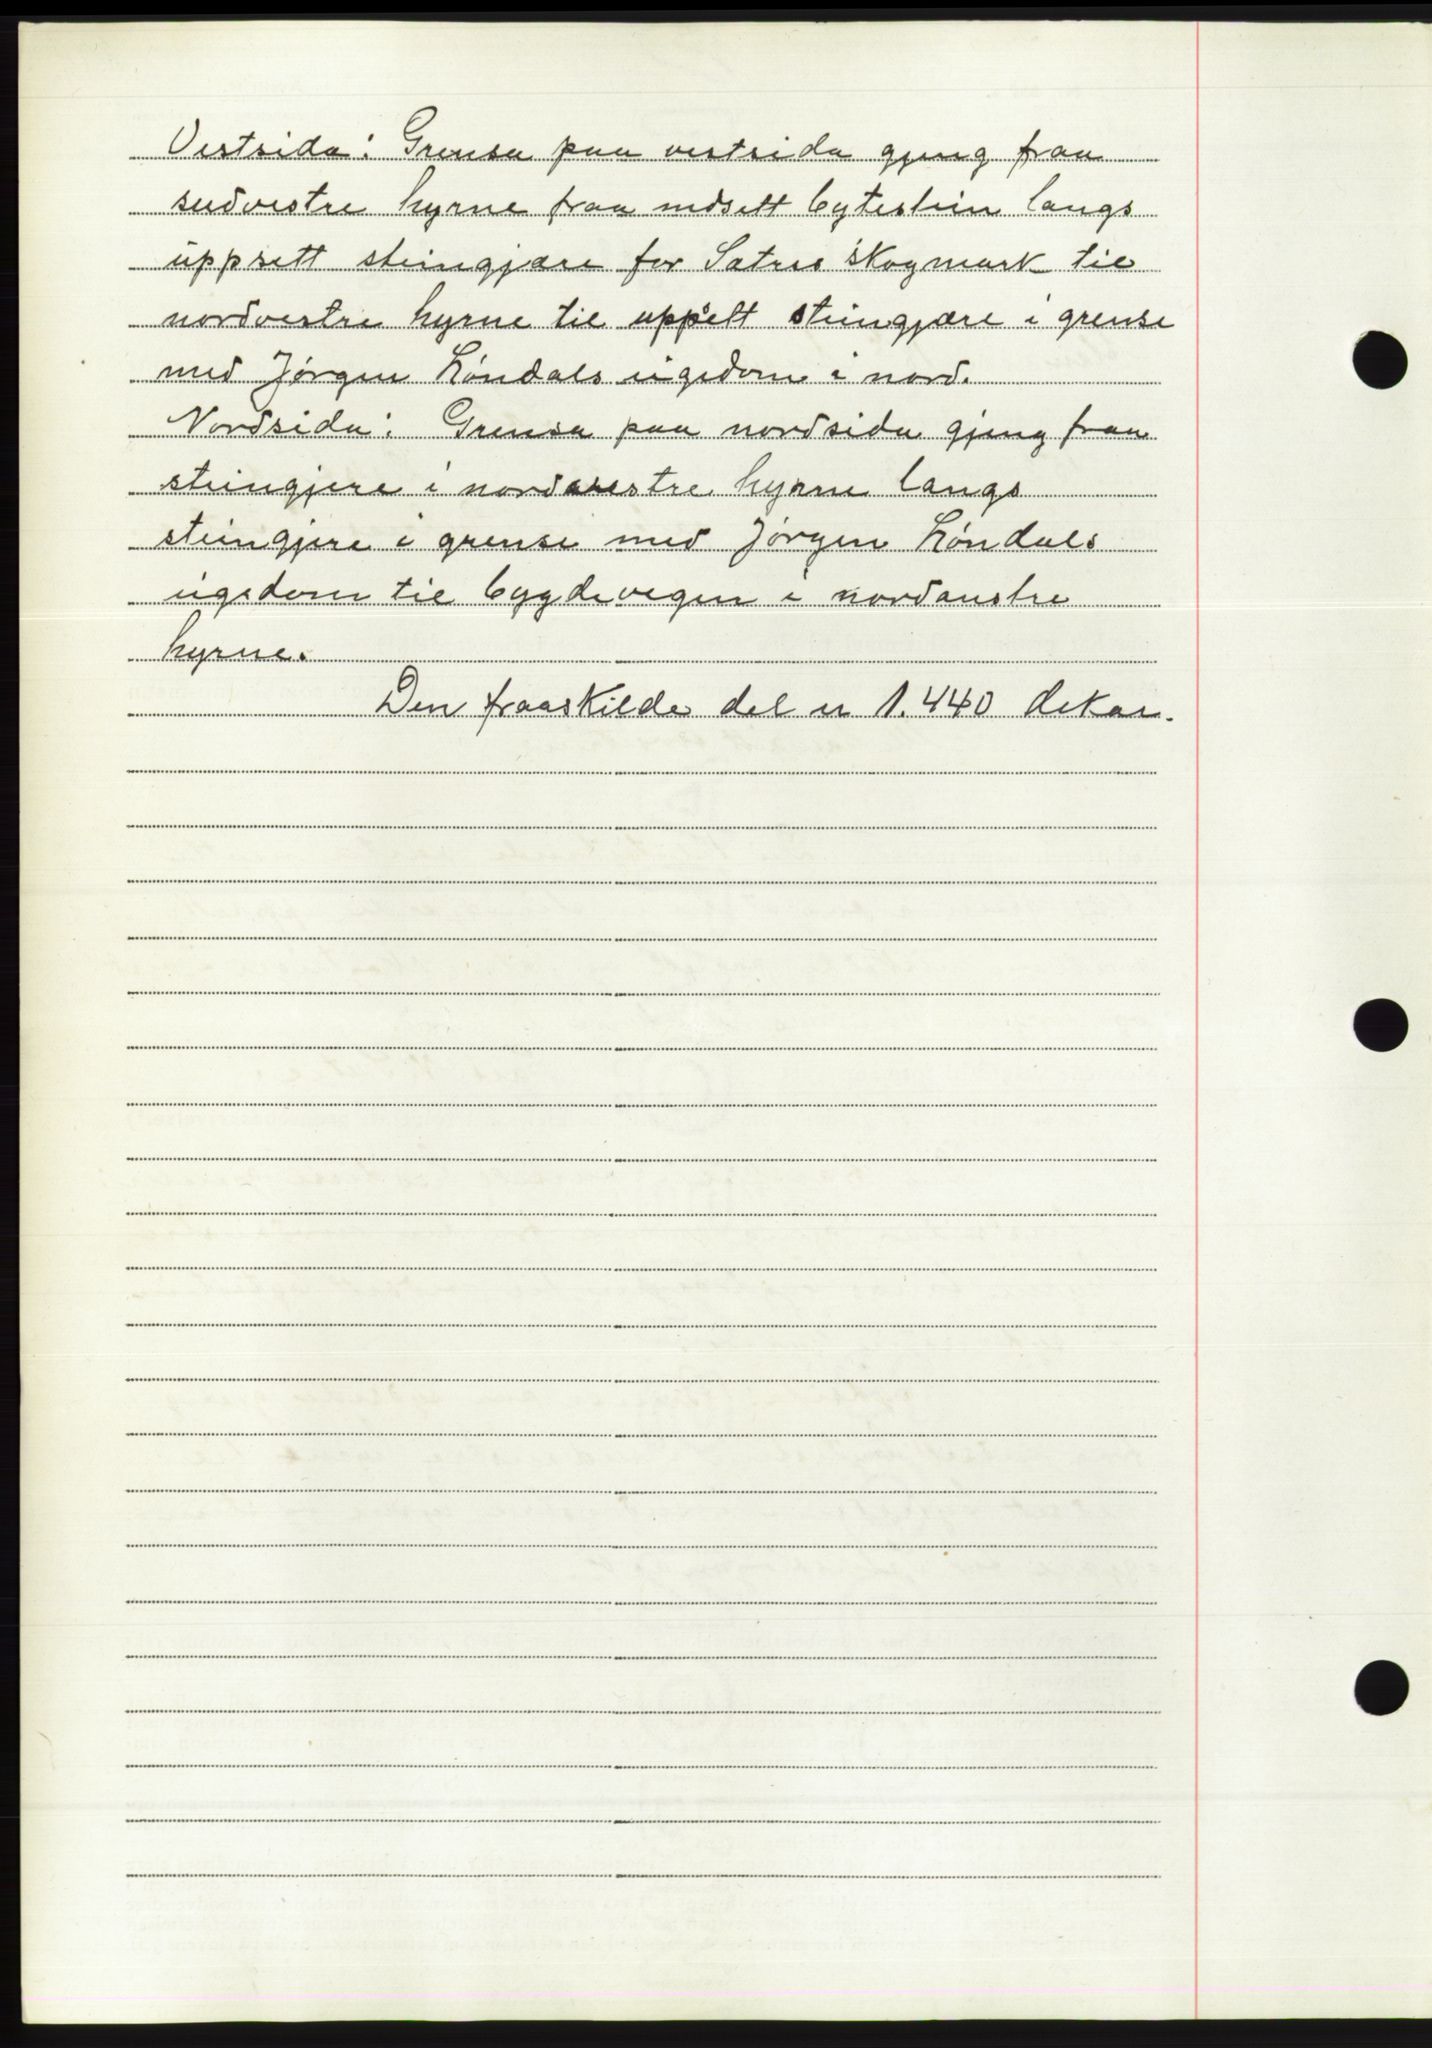 Vestsida: Grensa paa vestsida gjeng fraa
sudvestre hyrne fraa nedsett bytestein langs
uppsett steingjære for Sætres skogmark til
nordvestre hyrne til uppsett steingjære i grense
med Jørgen Løndals eigedom i nord.
Nordsida: Grensa paa nordsida gjeng fraa
steingjere i nordvestre hyrne langs
steingjere i grense med Jørgen Løndals
eigedom til bygdevegen i nordaustre
hyrne.
Den fraaskilde del er 1.440 dekar.